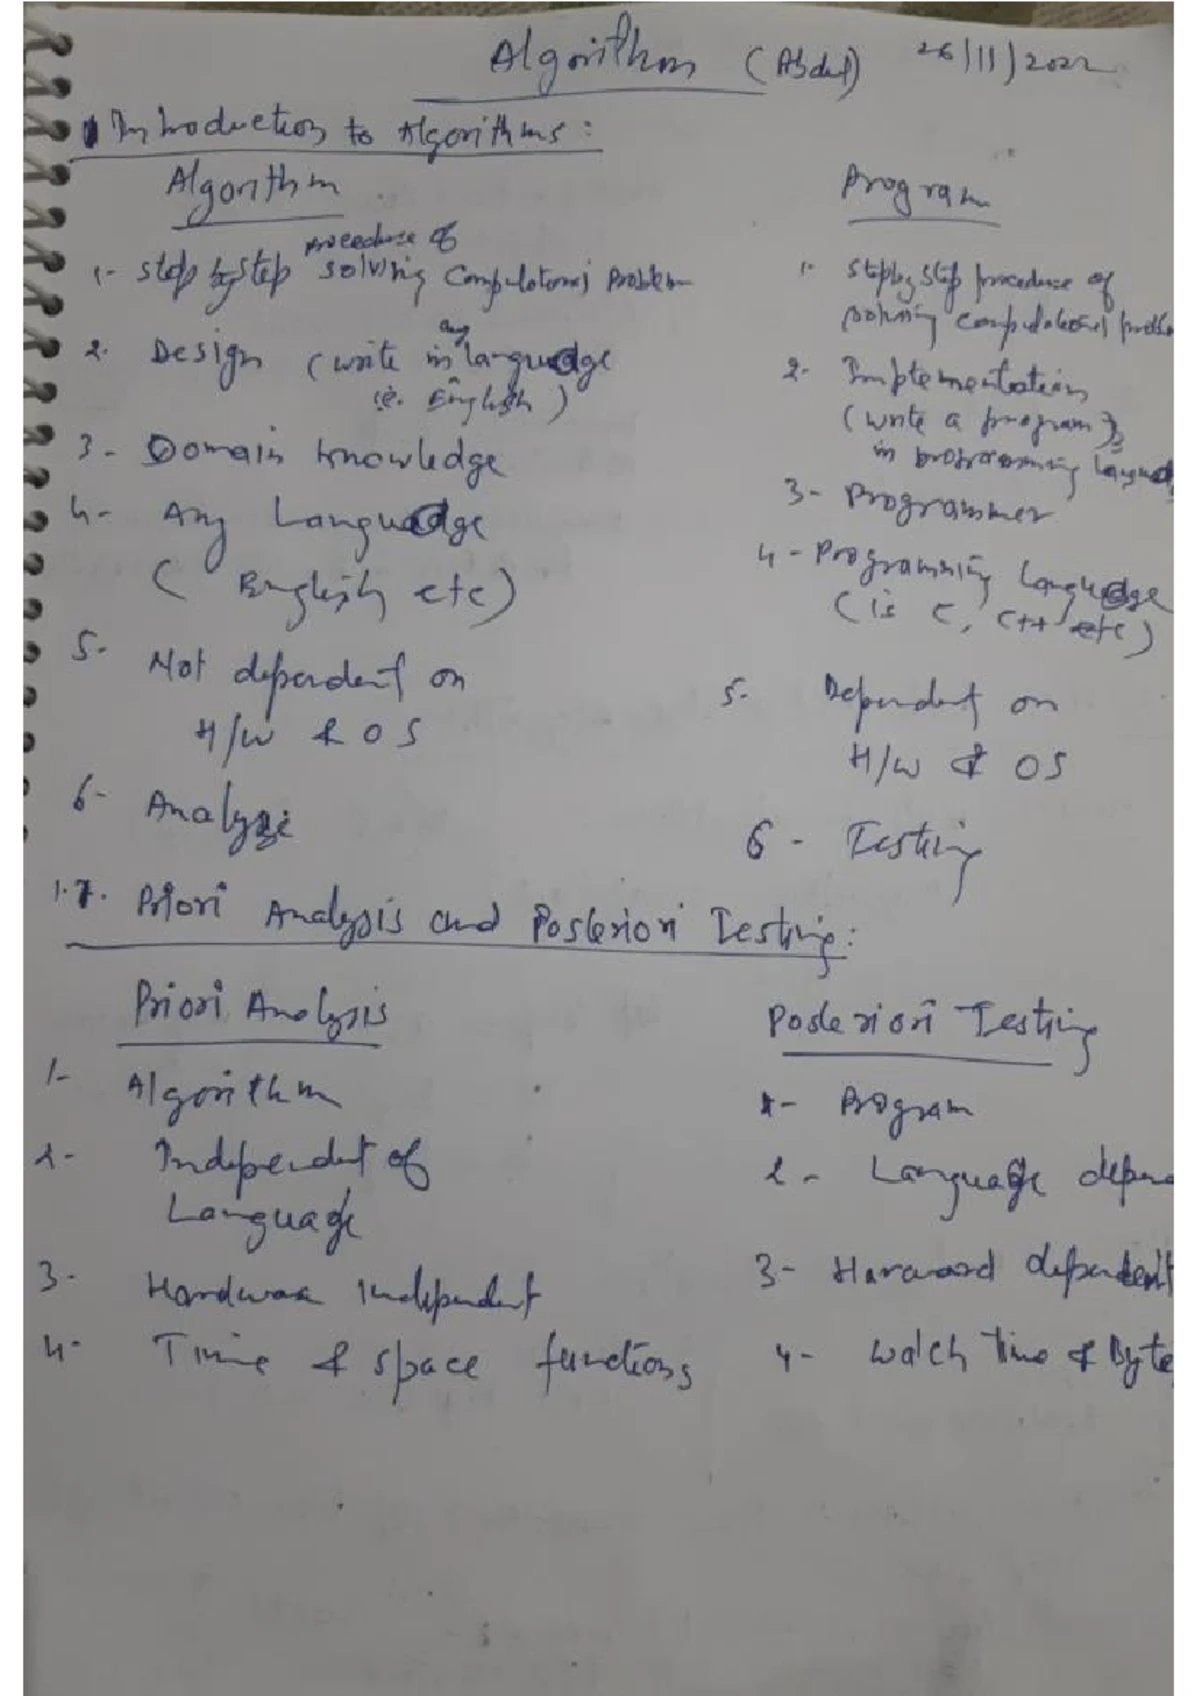 Algorithm (Abdul) 26/11/2022
1 Introduction to Algorithms:
Algorithm
1- step by step procedure of solving Computational Problem
2. Design (write in any language
i.e. English)
3- Domain knowledge
4- Any Language
(English etc)
5- Not dependent on
H/W & OS
6- Analyze
Program
1- Step by step procedure of
solving computational
2- Implementation
(write a program
in programming
3- Programmer
4- Programming Language
(is C, C++ etc)
5- Dependent on
H/W & OS
6- Testing
1.1. Priori Analysis and Posteriori Testing:
Priori Analysis
1- Algorithm
2- Independent of
Language
3- Hardware independent
4- Time & space functions
Posteriori Testing
1- Program
2- Language
3- dependent
4- Watch Time & Byte